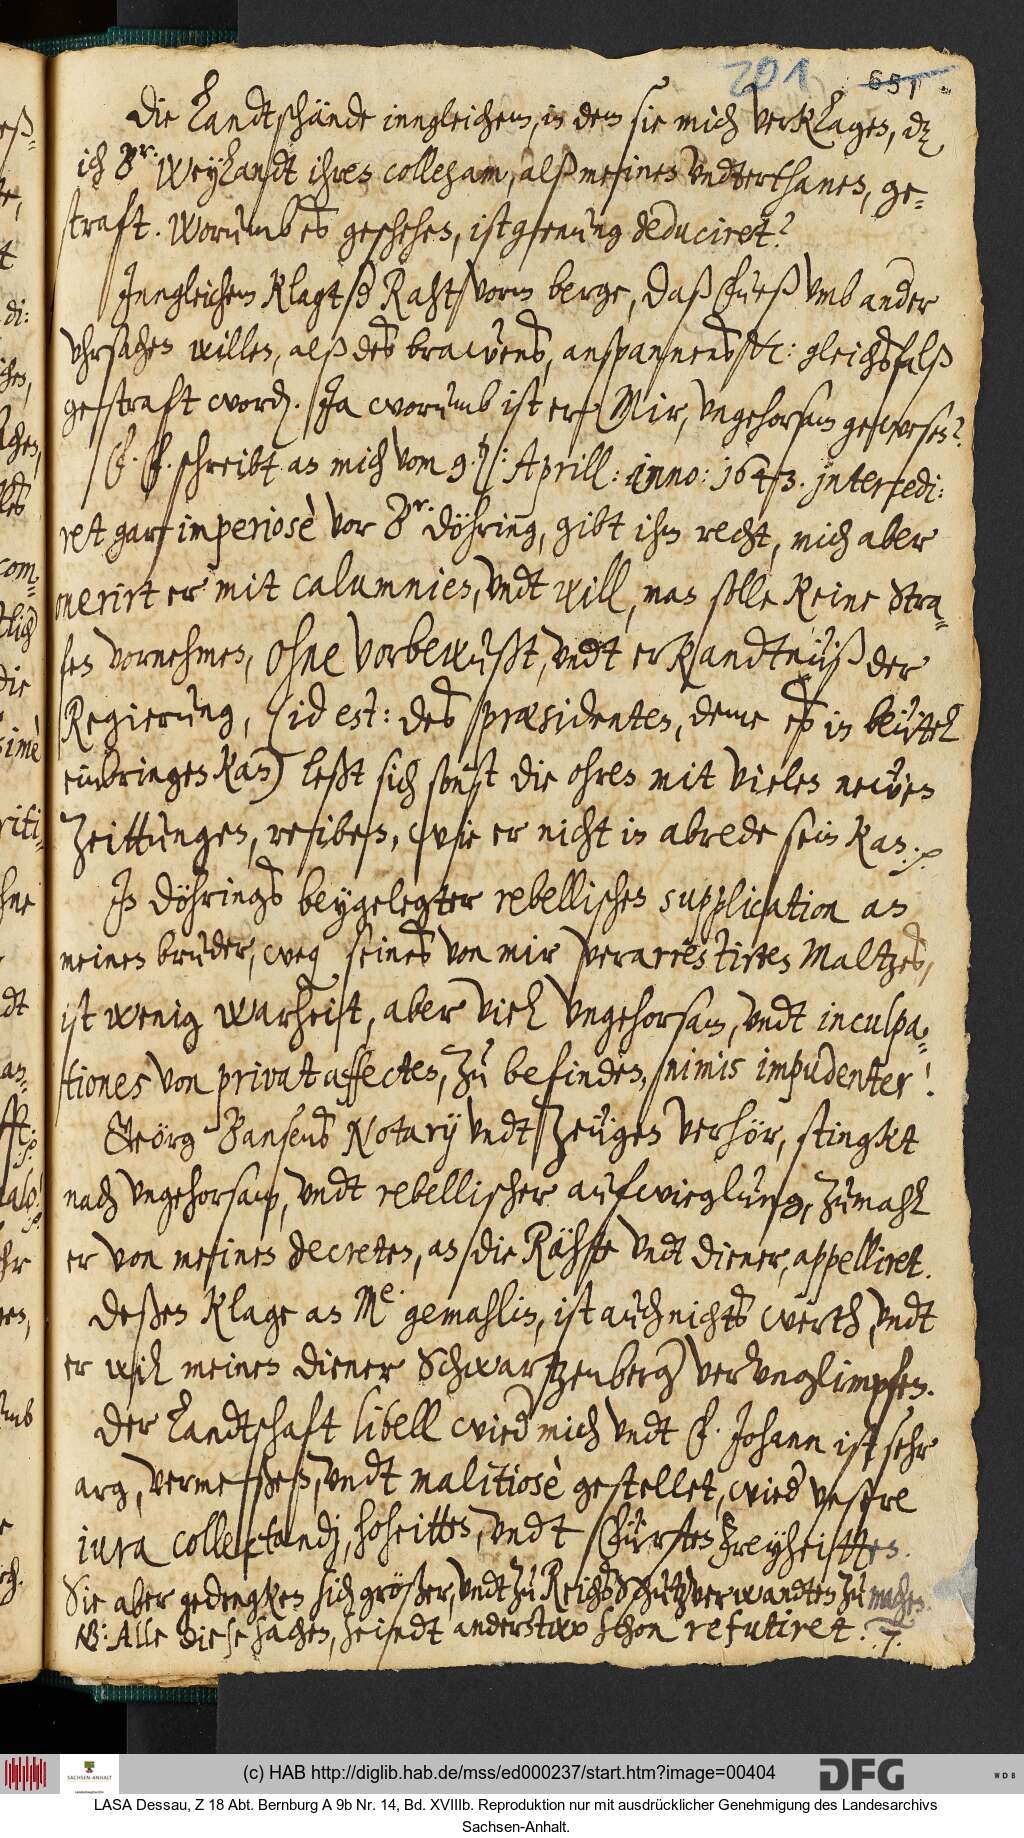 201 651.
Die Landtstände inngleichem, in dem sie mich verklagen, dz
ich Br. Weylandt ihren collegam, alß meinen vndterthanen, ge=
straft. Worumb es geschehen, ist genung deduciret?
Inngleichem klagt H Raht vorm berge, daß Fueß vmb ander
vhrsachen willen, alß des brawens, anspannens etc: gleichsfalß
gestraft word. Ja worumb ist er Mir, vngehorsam gewesen?
F. F. schreibt an mich vom 9. Aprill: Anno: 1643. intercedi:
ret gar imperiosè vor Br. Döhring, gibt ihm recht, mich aber
onerirt er mit calumnien, vndt will, man solle keine Stra=
fen vornehmen, ohne vorbewußt, vndt erkandtnüß der
Regierung, (id est: des præsidenten, deme es in beüttel
einbringen kan) leßt sich sonst die ohren mit vielen newen
Zeittungen, reiben, wie er nicht in abrede sein kan.
In Döhrings beygelegter rebellischen supplication an
meinen bruder, weg seines von mir verarrestirten Maltzes,
ist wenig warheit, aber viel vngehorsam, vndt inculpa=
tiones von privat affecten, zu befinden, nimis impudenter!
Geörg Bansens Notarij vndt Zeugen verhör, stingkt
nach vngehorsam, vndt rebellischer aufwieglung, zumahl
er von meinen decreten, an die Rähte vndt diener, appelliret.
Deßen klage an Me. gemahlin, ist auch nichts werth, vndt
er wil meinen diener Schwartzenberg verunglimpfen.
Der Landtschaft libell wied mich vndt F. Johann ist sehr
arg, vermeßen, vndt malitiosè gestellet, wied vnsere
iura collectandj, hoheitten, vndt Fürsten freyheitten.
Sie aber gedengken sich größer, vndt zu Reichs Schutzverwandten zu machen.
NB: Alle diese sachen, seindt anderstwo schon refutiret.
(c) HAB http://diglib.hab.de/mss/ed000237/start.htm?image=00404
SACHSEN-ANHALT
DFG
WDB
LASA Dessau, Z 18 Abt. Bernburg A 9b Nr. 14, Bd. XVIIIb. Reproduktion nur mit ausdrücklicher Genehmigung des Landesarchivs
Sachsen-Anhalt.